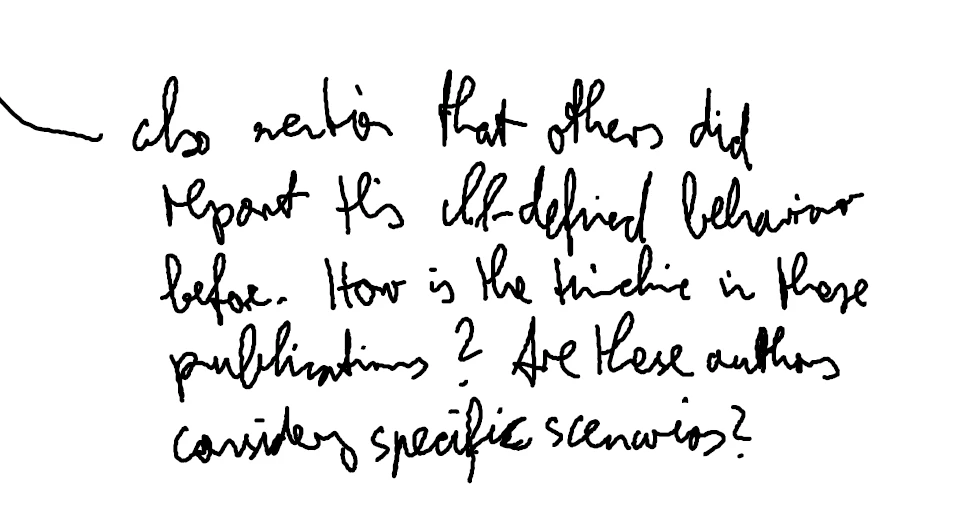 also mention that others did
report this ill-defined behavior
before. How is the in these
publications? Are these authors
considering specific scenarios?